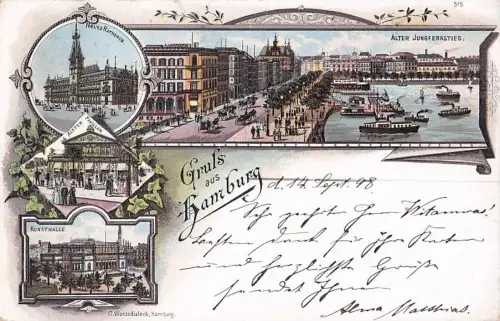 515
NEUES RATHAUS
ALTER JUNGFERNSTIEG.
ALSTER PAVILLON
KUNSTHALLE
Gruß
aus
Hamburg
d. 14 Sept. 98
Sehr geehrter Herr
Besten Dank für Ihre Karten
und herzlichste Grüße
sendet Ihnen
Alma Matthias.
Hamburg.